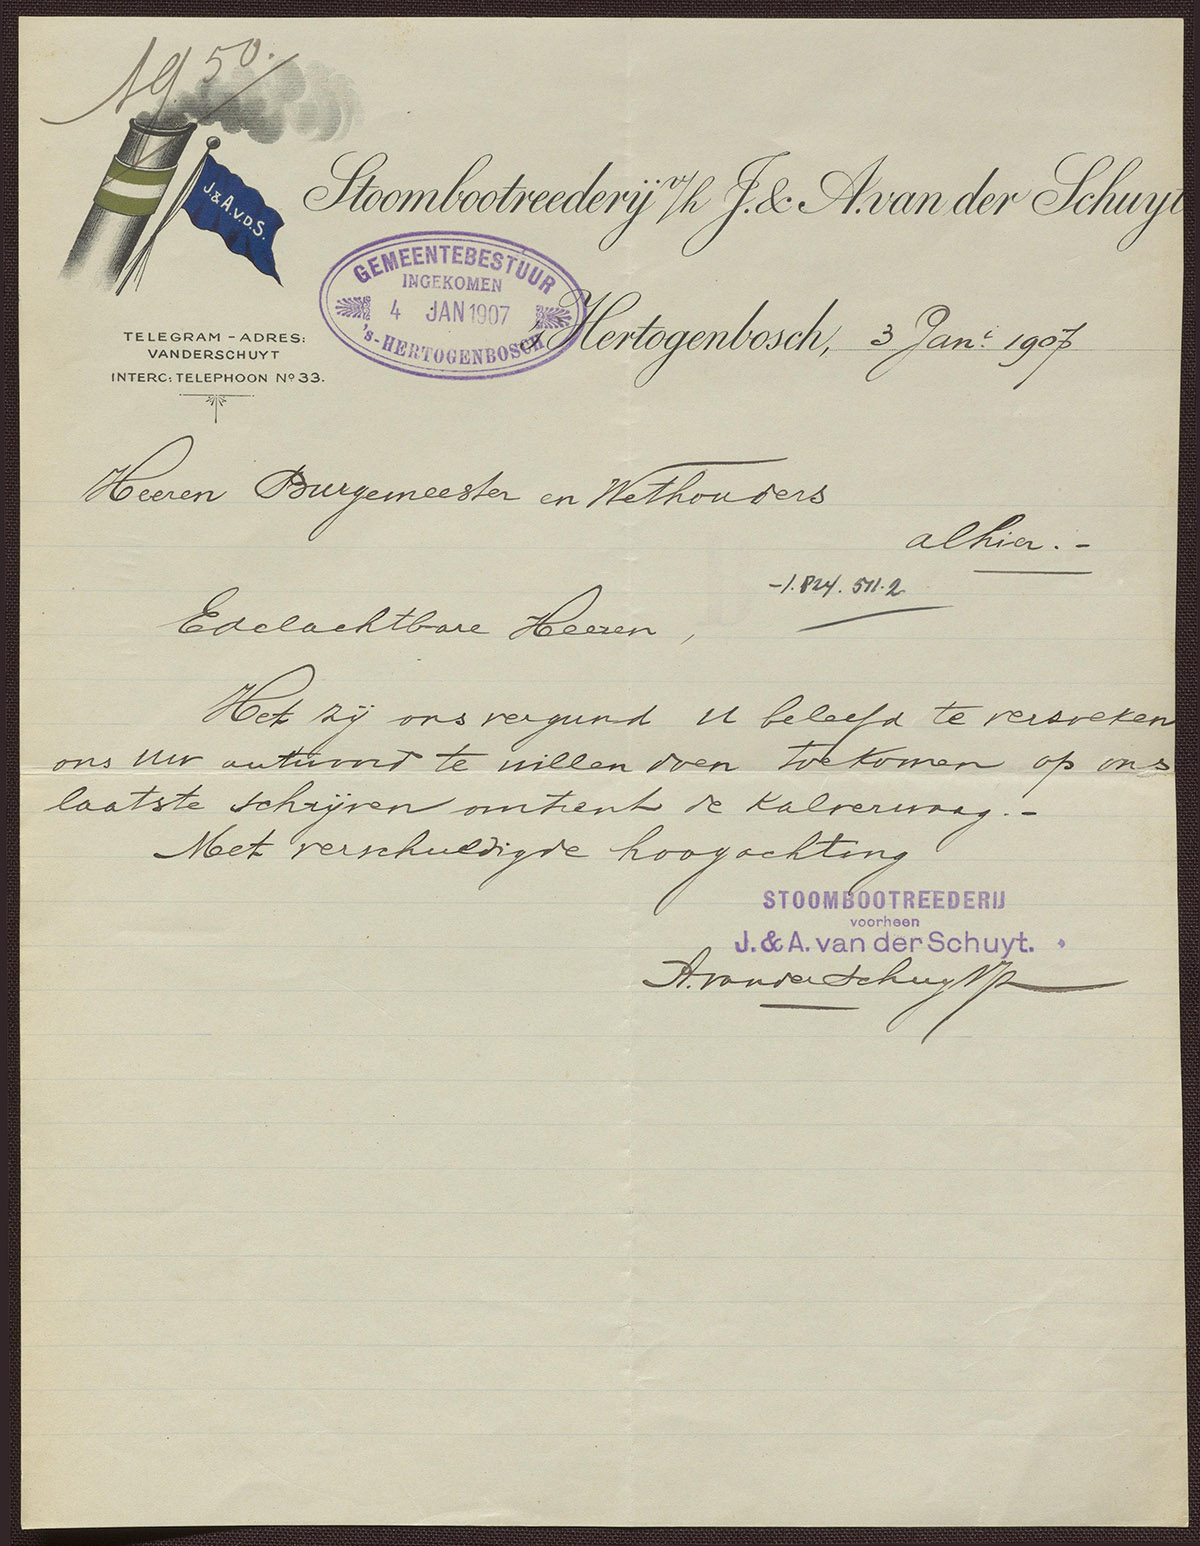 19 50.
J. & A. v. D. S.
Stoombootreederij v/h J. & A. van der Schuyt
GEMEENTEBESTUUR
INGEKOMEN
4 JAN 1907
's-HERTOGENBOSCH
's Hertogenbosch, 3 Jan. 1907
TELEGRAM-ADRES:
VANDERSCHUYT
INTERC: TELEPHOON No 33.
Heeren Burgemeester en Wethouders
alhier.-
-1.824.511.2
Edelachtbare Heeren,
Het zij ons vergund U beleefd te verzoeken
ons Uw antwoord te willen doen toekomen op ons
laatste schrijven omtrent de Kalverwaag.-
Met verschuldigde hoogachting
STOOMBOOTREEDERIJ
voorheen
J. & A. van der Schuyt.
A. van der Schuyt